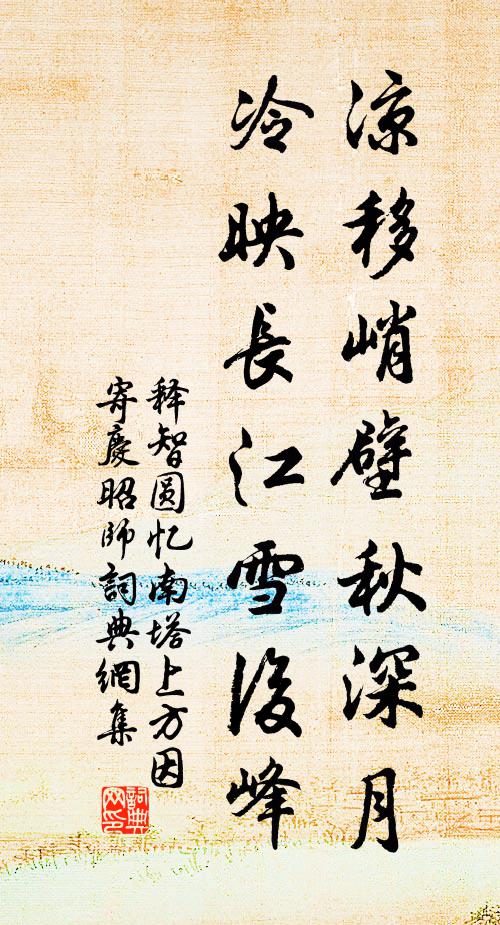 凉移峭壁秋深月
冷映長江雪後峰
释智圆忆南塔上方因
寄慶昭师詞典網集
詞典
网印